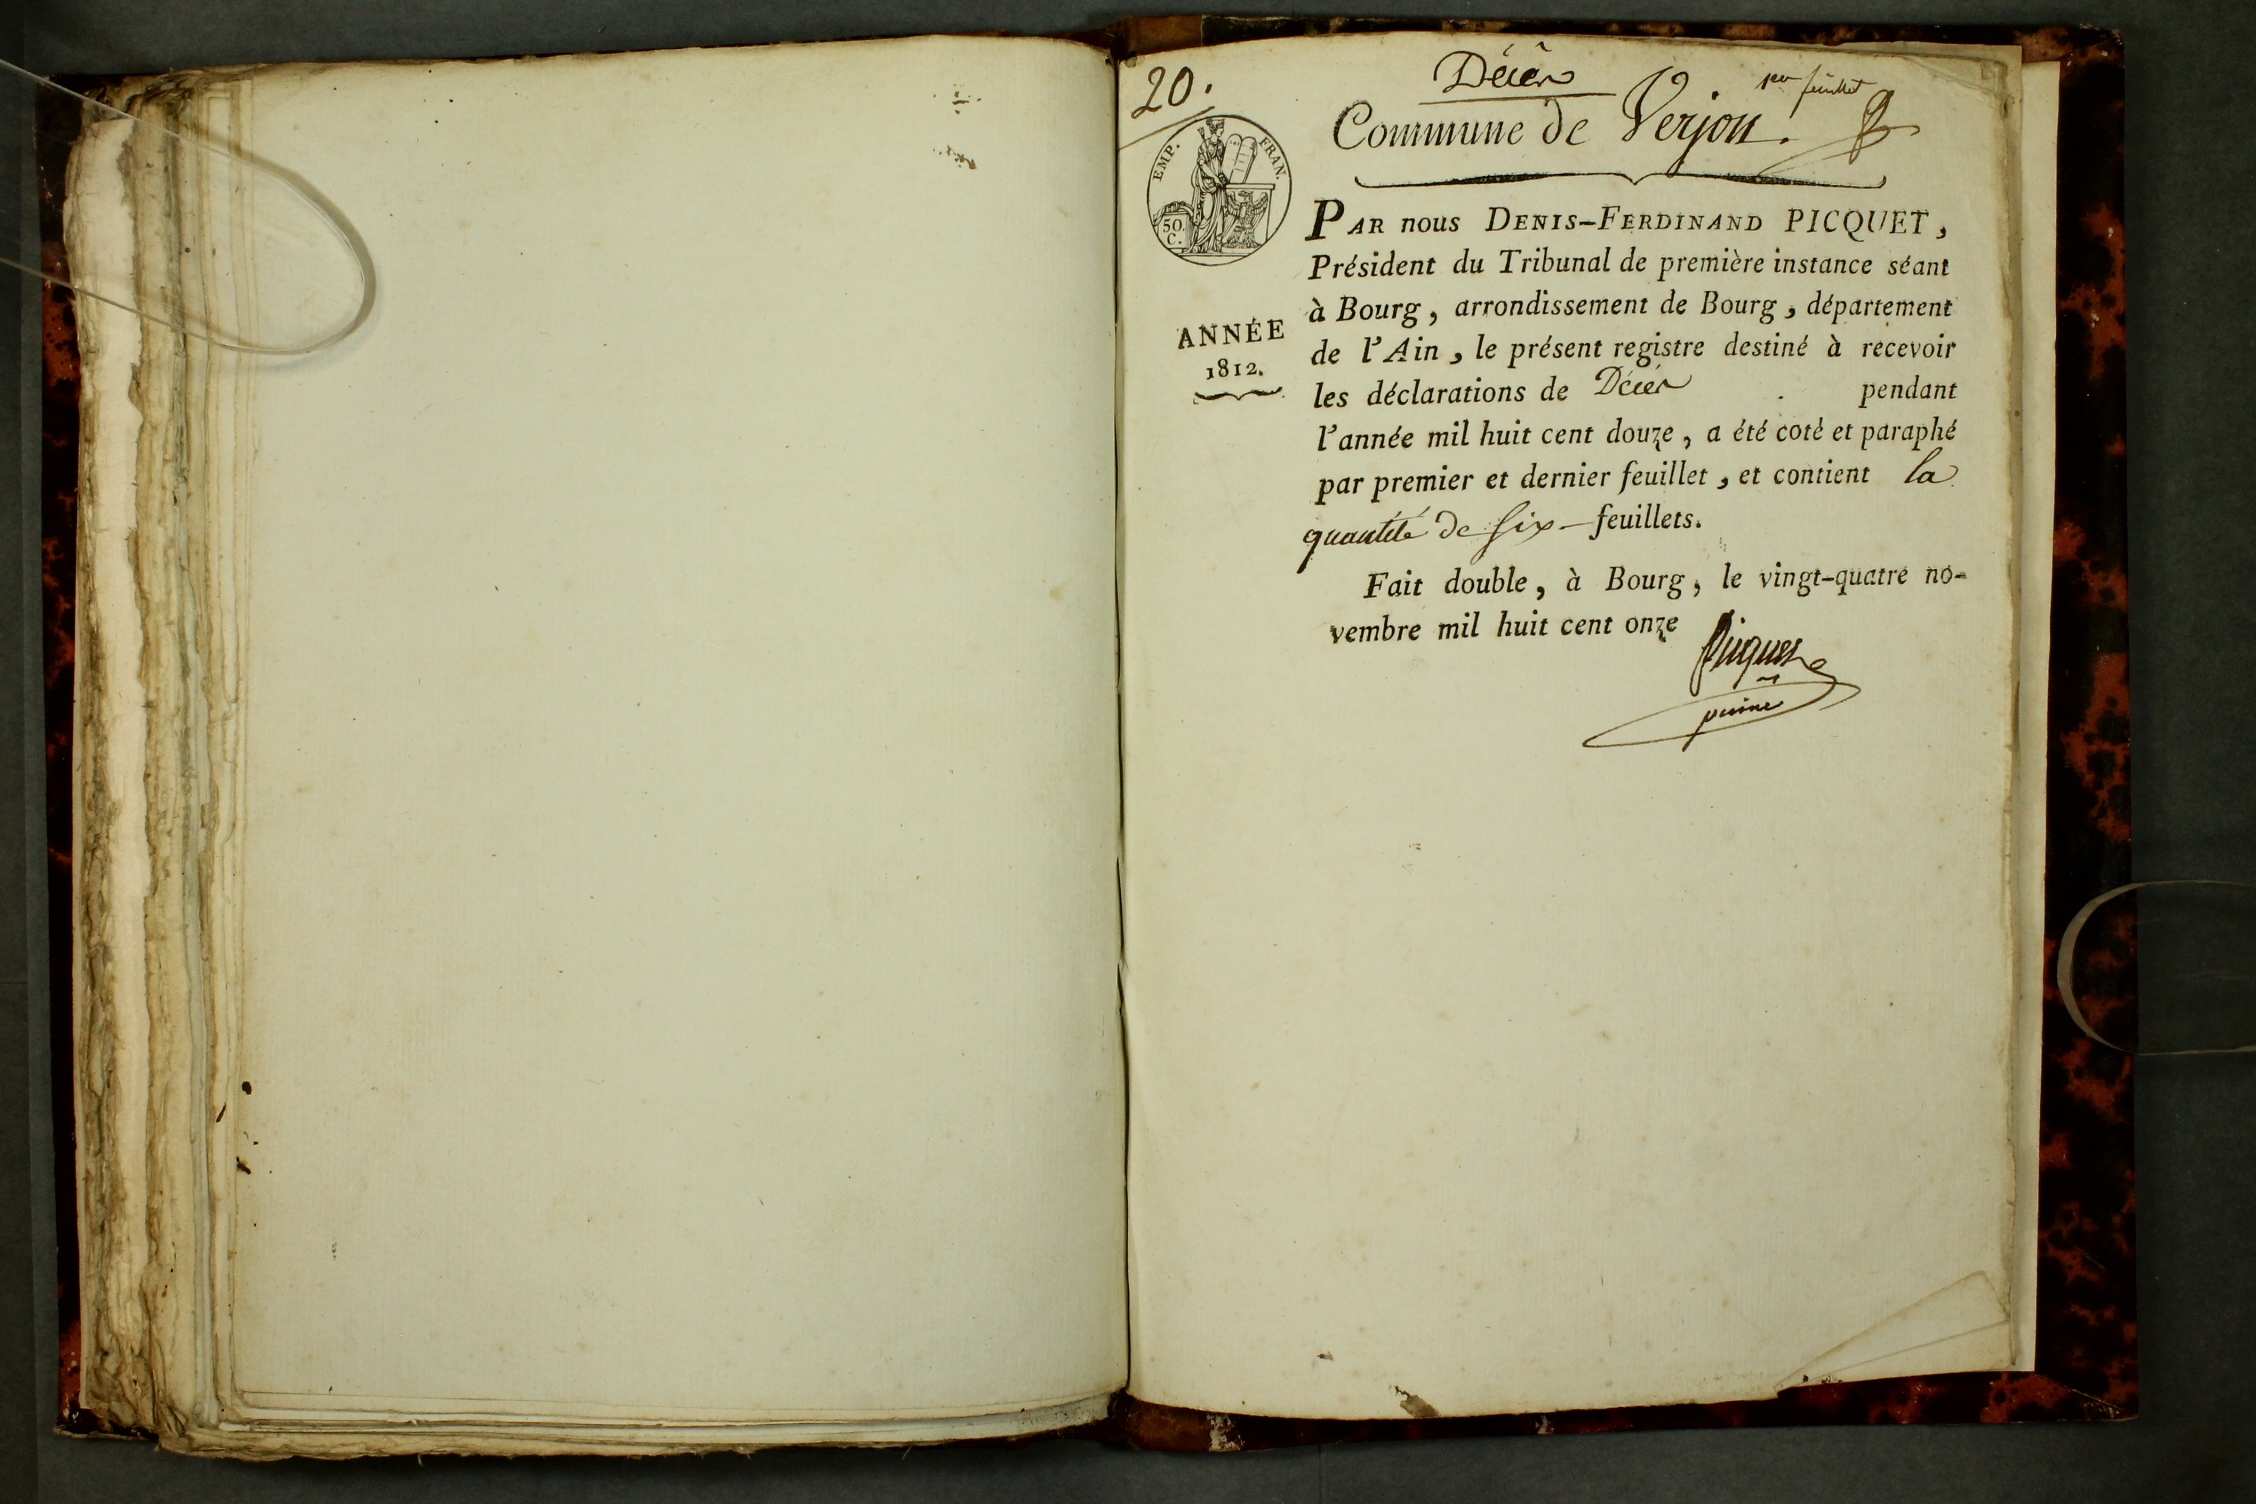 20.
Décès
1er feuillet
Commune de Verjon.
EMP. FRAN.
50.
C.
PAR nous DENIS-FERDINAND PICQUET,
Président du Tribunal de première instance séant
à Bourg, arrondissement de Bourg, département
ANNÉE
1812.
de l'Ain, le présent registre destiné à recevoir
les déclarations de Décès pendant
l'année mil huit cent douze, a été coté et paraphé
par premier et dernier feuillet, et contient la
quantité de six feuillets.
Fait double, à Bourg, le vingt-quatre no-
vembre mil huit cent onze
Picquet